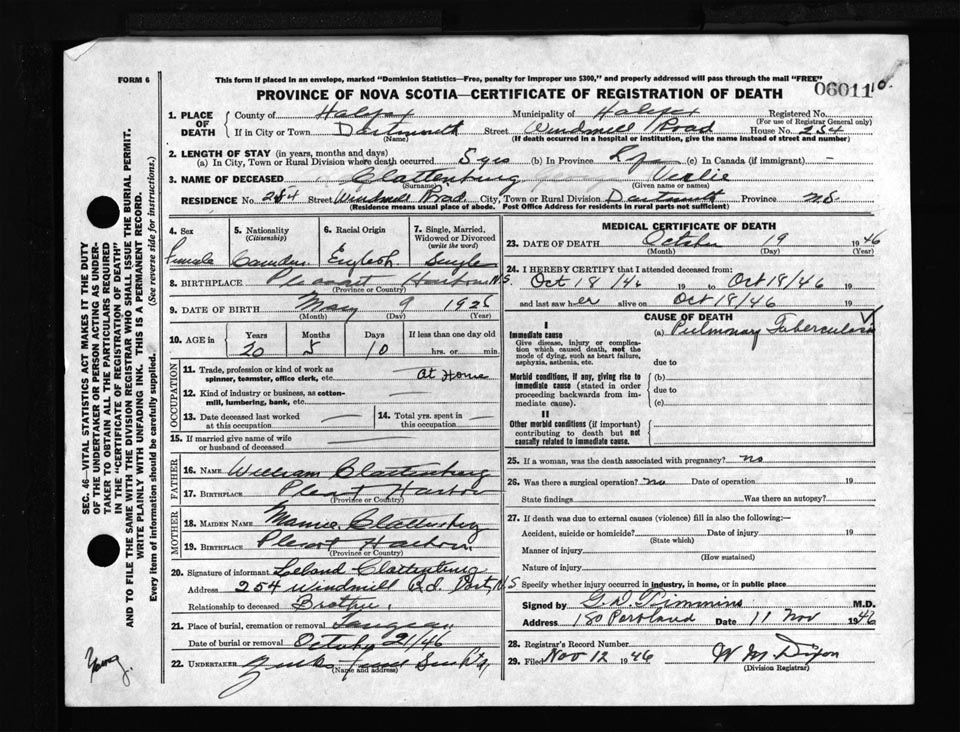 FORM 6
This form if placed in an envelope, marked "Dominion Statistics—Free, penalty for improper use $300," and properly addressed will pass through the mail "FREE"
06011
PROVINCE OF NOVA SCOTIA—CERTIFICATE OF REGISTRATION OF DEATH
1. PLACE OF DEATH County of Halifax Municipality of Halifax Registered No.
(For use of Registrar General only)
If in City or Town Dartmouth Street Windmill Road House No. 254
(Name) (If death occurred in a hospital or institution, give the name instead of street and number)
2. LENGTH OF STAY (in years, months and days)
(a) In City, Town or Rural Division where death occurred 5 yrs (b) In Province Life (c) In Canada (if immigrant) —
3. NAME OF DECEASED Clattenburg
(Surname) (Given name or names)
RESIDENCE No. 254 Street Windmill Road City, Town or Rural Division Dartmouth Province N.S.
(Residence means usual place of abode. Post Office Address for residents in rural parts not sufficient)
4. Sex 5. Nationality (Citizenship) 6. Racial Origin 7. Single, Married, Widowed or Divorced (write the word)
Female Canadian English Single
8. BIRTHPLACE Pleasant Harbour N.S.
(Province or Country)
9. DATE OF BIRTH May 9 1926
(Month) (Day) (Year)
10. AGE in Years Months Days If less than one day old
20 5 10 hrs. or min.
OCCUPATION
11. Trade, profession or kind of work as spinner, teamster, office clerk, etc. At Home
12. Kind of industry or business, as cotton-mill, lumbering, bank, etc.
13. Date deceased last worked at this occupation
14. Total yrs. spent in this occupation
15. If married give name of wife or husband of deceased
FATHER
16. NAME William Clattenburg
17. BIRTHPLACE Pleasant Harbour
(Province or Country)
MOTHER
18. MAIDEN NAME Mamie Clattenburg
19. BIRTHPLACE Pleasant Harbour
(Province or Country)
20. Signature of informant Leland Clattenburg
Address 254 Windmill Rd. Dart, N.S.
Relationship to deceased Brother
21. Place of burial, cremation or removal Tangier
Date of burial or removal October 21/46
22. UNDERTAKER
(Name and address)
MEDICAL CERTIFICATE OF DEATH
23. DATE OF DEATH October 19 1946
(Month) (Day) (Year)
24. I HEREBY CERTIFY that I attended deceased from:
Oct 18/46 19 to Oct 18/46 19
and last saw her alive on Oct 18/46 19
CAUSE OF DEATH
I
Immediate cause (a) Pulmonary Tuberculosis
Give disease, injury or complication which caused death, not the mode of dying, such as heart failure, asphyxia, asthenia, etc.
due to
Morbid conditions, if any, giving rise to immediate cause (stated in order proceeding backwards from immediate cause).
(b)
due to
(c)
II
Other morbid conditions (if important) contributing to death but not causally related to immediate cause.
25. If a woman, was the death associated with pregnancy? no
26. Was there a surgical operation? no Date of operation 19
State findings Was there an autopsy?
27. If death was due to external causes (violence) fill in also the following:—
Accident, suicide or homicide? Date of injury 19
(State which)
Manner of injury
(How sustained)
Nature of injury
Specify whether injury occurred in industry, in home, or in public place
Signed by G D Timmins M.D.
Address 180 Portland Date 11 Nov 1946
28. Registrar's Record Number
29. Filed Nov 12 1946 W M Dixon
(Division Registrar)
SEC. 46—VITAL STATISTICS ACT MAKES IT THE DUTY
OF THE UNDERTAKER OR PERSON ACTING AS UNDER-
TAKER TO OBTAIN ALL THE PARTICULARS REQUIRED
IN THE "CERTIFICATE OF REGISTRATION OF DEATH"
AND TO FILE THE SAME WITH THE DIVISION REGISTRAR WHO SHALL ISSUE THE BURIAL PERMIT.
WRITE PLAINLY WITH UNFADING INK. THIS IS A PERMANENT RECORD.
Every item of information should be carefully supplied. (See reverse side for instructions.)